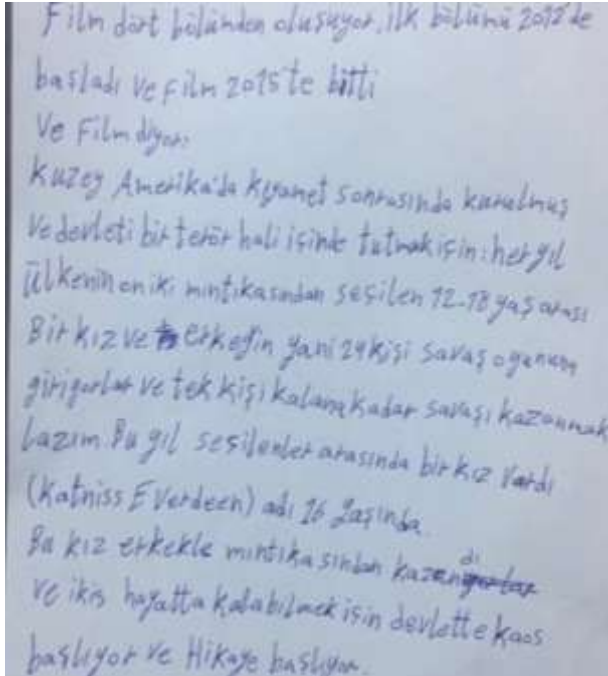 Film dört bölünden oluşuyor, ilk bölümü 2012'de
başladı ve film 2015'te bitti
Ve Film diyor:
Kuzey Amerika'da kıyamet sonrasında kurulmuş
Ve devleti bir terör hali içinde tutmak için: her yıl
Ülkenin on iki mıntıkasından seçilen 12-18 yaş arası
Bir kız ve erkeğin yani 24 kişi savaş oyununa
giriyorlar ve tek kişi kalana kadar savaşı kazanmak
Lazım. Bu yıl seçilenler arasında bir kız vardı
(Katniss Everdeen) adı 16 yaşında.
Bu kız erkekle mıntıkasından kazandı
ve ikis hayatta kalabilmek için devlette kaos
başlıyor ve Hikaye başlıyor.